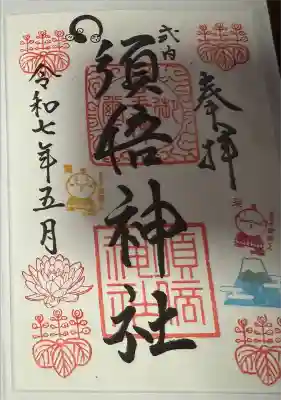 奉拝
式内
須倍神社
須倍
神社
令和七年五月